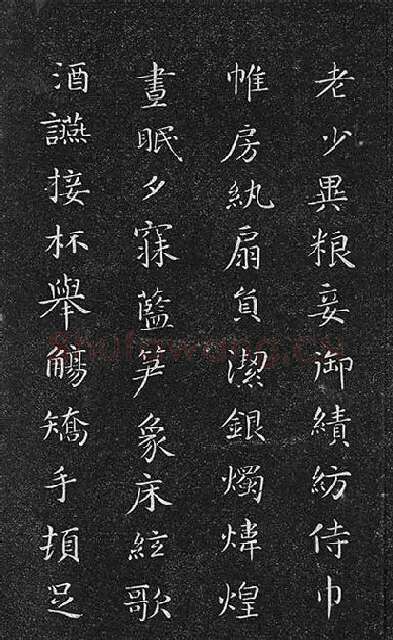 老少異粮妾御績紡侍巾
帷房紈扇員潔銀燭煒煌
晝眠夕寐藍笋象床絃歌
酒讌接杯舉觴矯手頓足